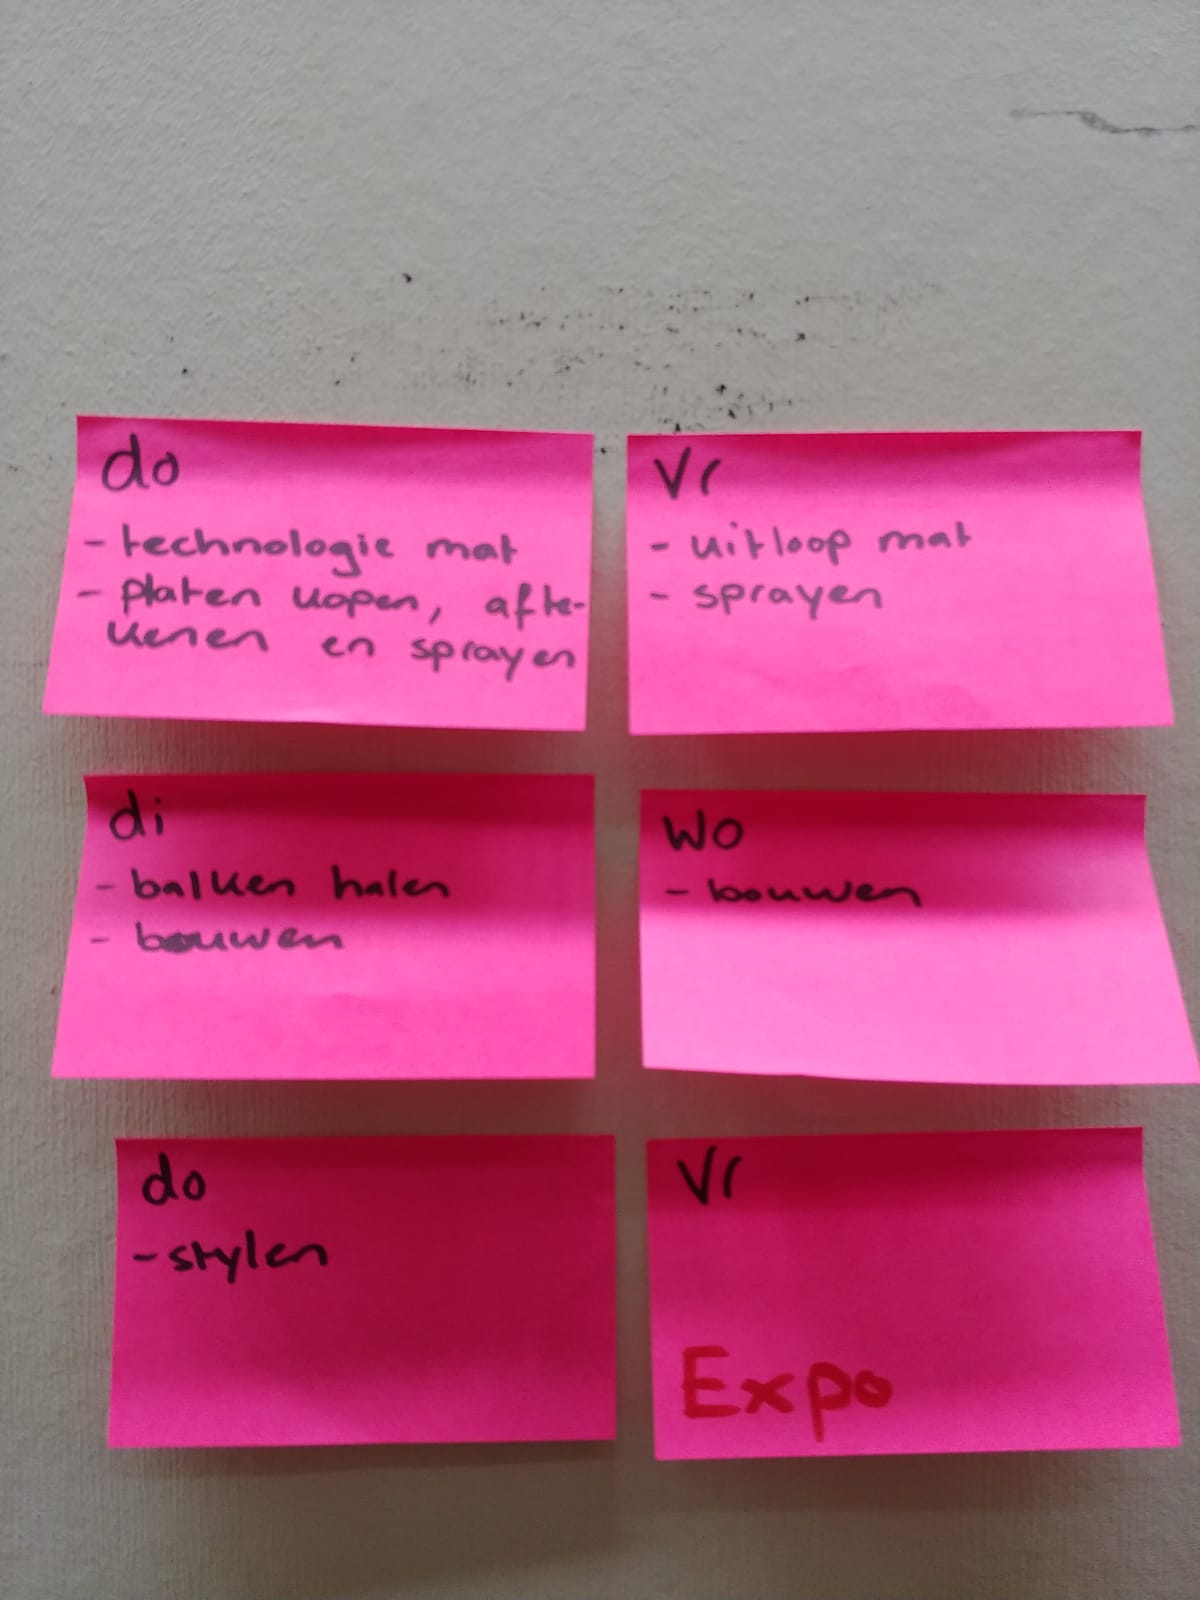 do
- technologie mat
- platen kopen, afte-
kenen en sprayen
Vr
- uitloop mat
- sprayen
di
- balken halen
- bouwen
wo
- bouwen
do
- stylen
Vr
Expo